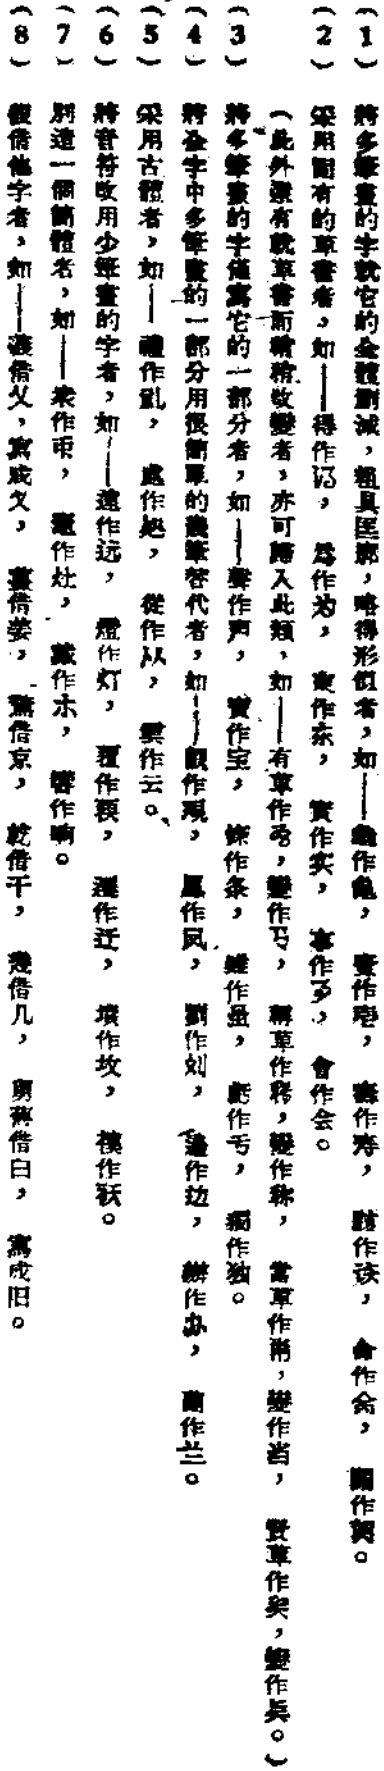 (1) 將多筆畫的字就它的全體刪減，粗具匡廓，略得形似者，如——龜作亀， 壽作寿， 命作 ， 關作 。
(2) 采用固有的草書者，如——得作 ， 爲作为， 東作东， 實作实， 事作 ， 會作会。
(此外還有就草書而稍稍改變者，亦可歸入此類，如——有草作 ，變作 ， 稱草作 ，變作称， 當草作 ，變作当， 賢草作 ，變作 。)
(3) 將多筆畫的字僅寫它的一部分者，如——聲作声， 寶作宝， 條作条， 雖作虽， 虧作亏， 獨作独。
(4) 將全字中多筆畫的一部分用很簡單的幾筆替代者，如——觀作观， 鳳作凤， 劉作刘， 邊作边， 辦作办， 蘭作兰。
(5) 采用古體者，如——禮作 ， 處作処， 從作从， 雲作云。
(6) 將音符改用少筆畫的字者，如——遠作远， 燈作灯， 覆作 ， 遷作迁， 墳作坟， 襖作袄。
(7) 別造一個簡體者，如—— 作 ， 竈作灶， 戴作 ， 響作响。
(8) 假借他字者，如—— 借乂，寫成 ， 薑借姜， 驚借京， 乾借干， 幾借几， 舅舊借臼， 寫成旧。